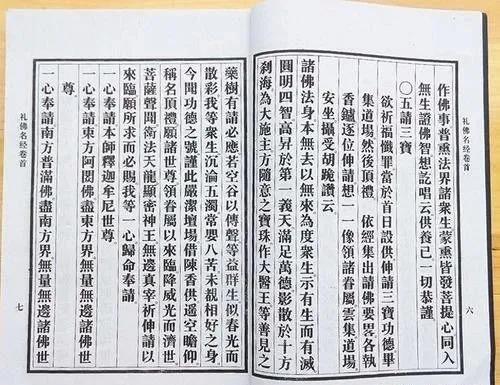 礼佛名经卷首
六
作佛事普熏法界諸衆生蒙熏皆發菩提心同入
無生證佛智想訖唱云供養已一切恭謹
〇五請三寶
欲祈福懺罪當於首日設供伸請三寶功德畢
集道場然後頂禮 依經集出請佛要畧各執
香鑪逐位伸請想一一像領諸眷屬雲集道場
安坐攝受胡跪讚云
諸佛法身本無去以無來為度衆生示有生而有滅
圓明四智高昇於第一義天滿足萬德影散於十方
刹海為大施主方隨意之寶珠作大醫王等善見之
藥樹有請必應若空谷以傳聲等益群生似春光而
散彩我等衆生沉淪五濁常嬰八苦未覩相好之身
今聞功德之號謹此嚴潔壇場備陳香供遥空瞻仰
稱名頂禮願諸世尊領眷屬以來臨降威光而濟世
菩薩聲聞衛法天龍顯密神王無邊真宰祈伸請以
來臨願所求而必賜我等一心歸命奉請
一心奉請本師釋迦牟尼世尊
一心奉請東方阿閦佛盡東方界無量無邊諸佛世
尊
一心奉請南方普滿佛盡南方界無量無邊諸佛世
礼佛名经卷首
七